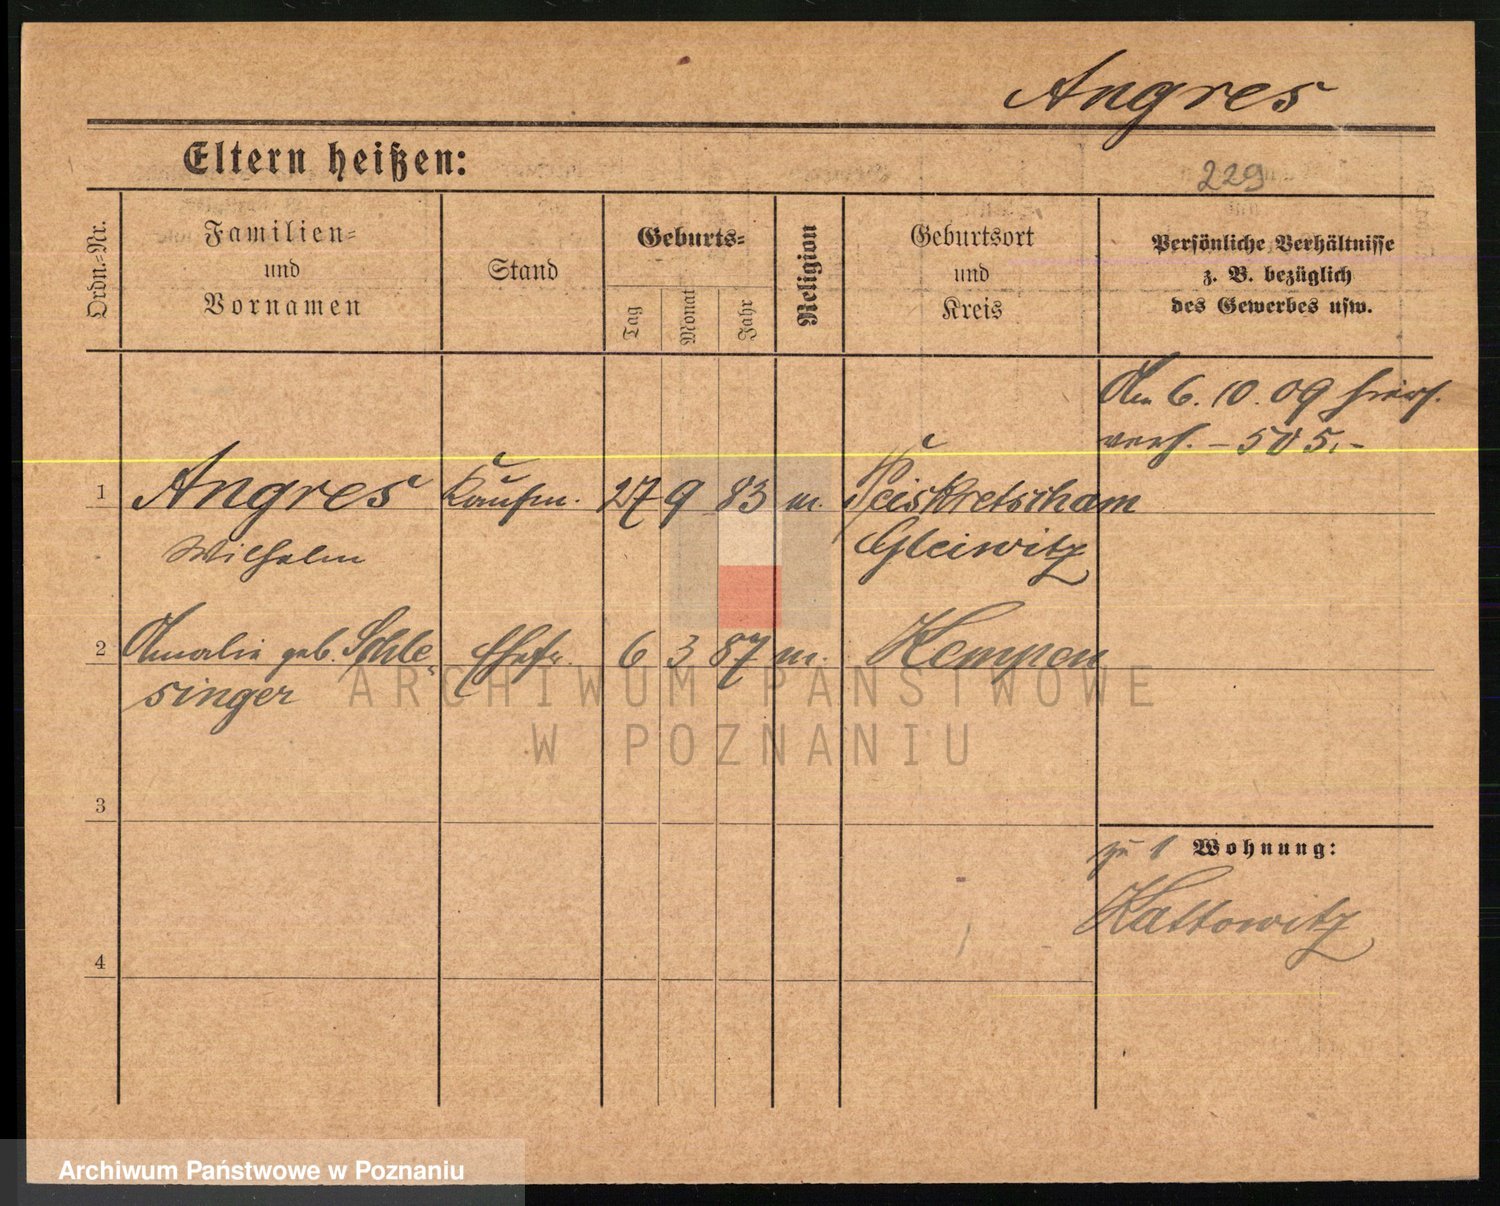 Angres
Eltern heißen:
229
Ordn.=Nr.
Familien=
und
Vornamen
Stand
Geburts=
Tag
Monat
Jahr
Religion
Geburtsort
und
Kreis
Persönliche Verhältnisse
z. B. bezüglich
des Gewerbes usw.
Am 6. 10. 09 hier
verh. – 505.–
1 Angres Kaufm. 27 9 83 m. Peiskretscham
Wilhelm Gleiwitz
2 Amalie geb. Schle- Ehefr. 6 3 87 m. Kempen
singer
ARCHIWUM PAŃSTWOWE
W POZNANIU
3
zu 1 Wohnung:
Kattowitz
4
Archiwum Państwowe w Poznaniu